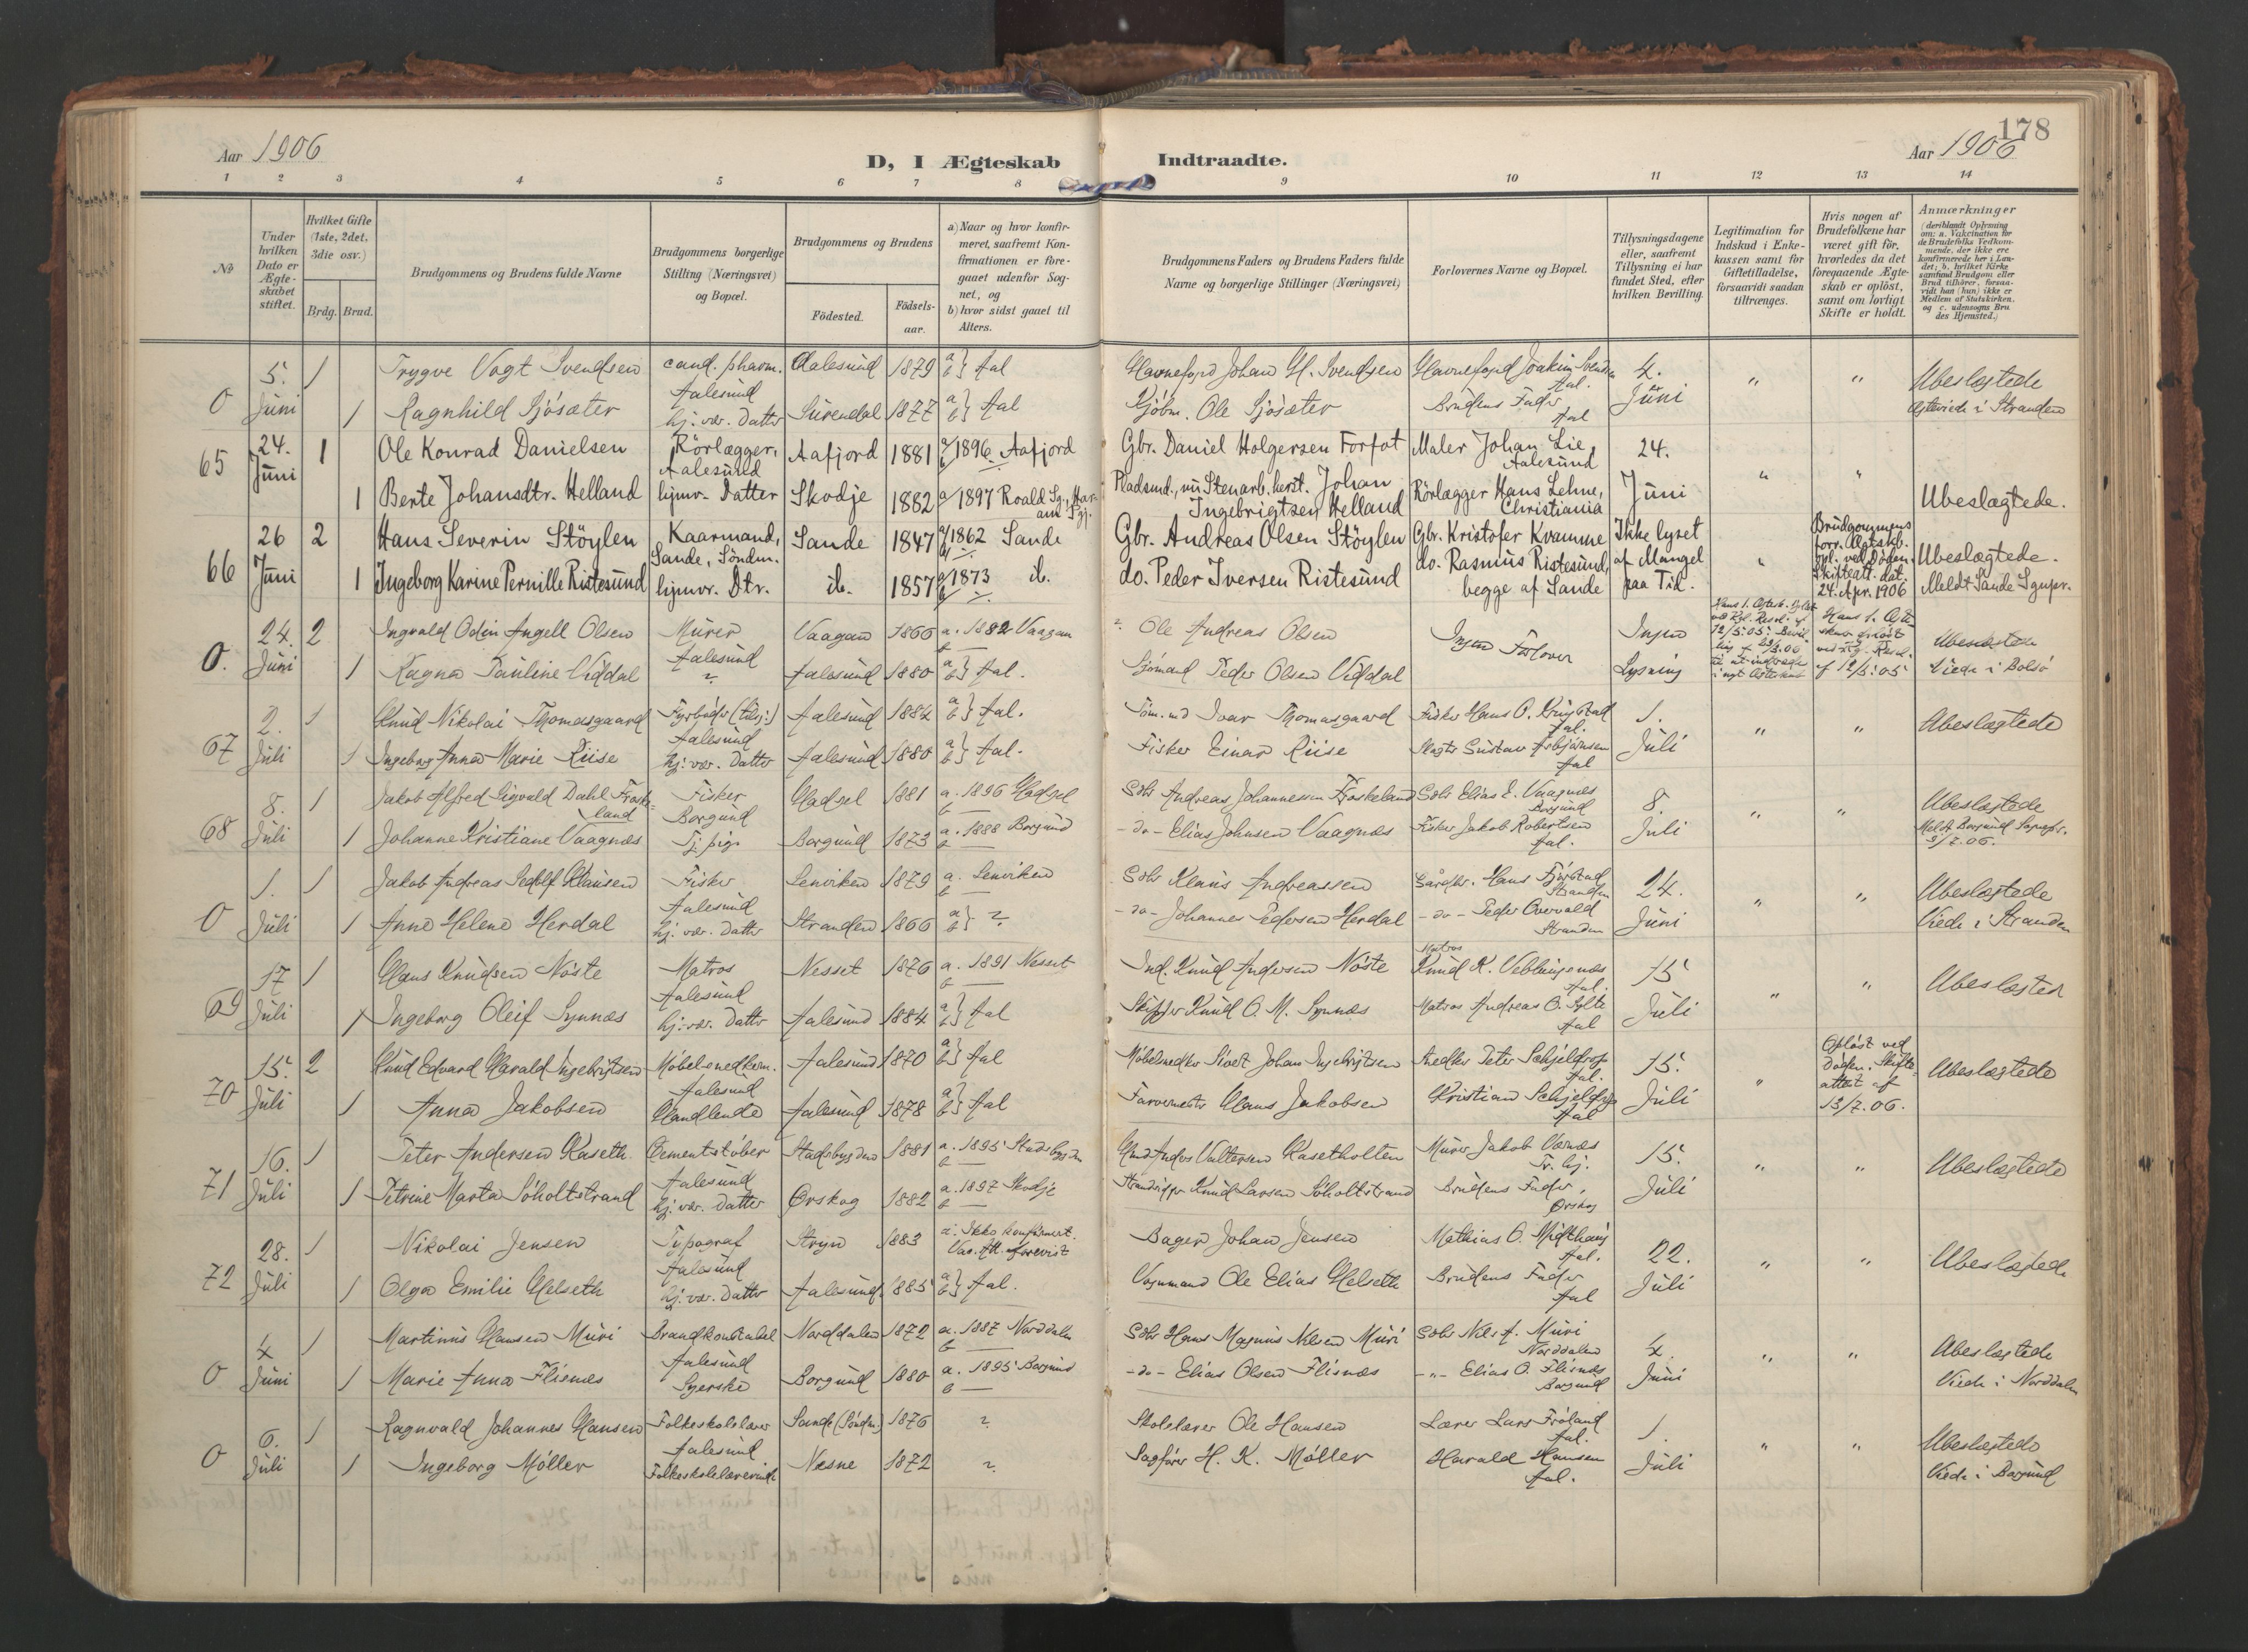 Aar 1906
D, I Ægteskab Indtraadte.
178
Aar 1906
1 2 3 4 5 6 7 8 9 10 11 12 13 14
No
Under hvilken Dato er Ægteskabet stiftet.
Hvilket Gifte (1ste, 2det, 3die osv.)
Brdg. Brud.
Brudgommens og Brudens fulde Navne
Brudgommens borgerlige Stilling (Næringsvei) og Bopæl.
Brudgommens og Brudens
Födested.
Födselsaar.
a) Naar og hvor konfirmeret, saafremt Konfirmationen er foregaaet udenfor Sognet, og
b) hvor sidst gaaet til Alters.
Brudgommens Faders og Brudens Faders fulde Navne og borgerlige Stillinger (Næringsvei)
Forlovernes Navne og Bopæl.
Tillysningsdagene eller, saafremt Tillysning ei har fundet Sted, efter hvilken Bevilling.
Legitimation for Indskud i Enkekassen samt for Giftetilladelse, forsaavidt saadan tiltrænges.
Hvis nogen af Brudefolkene har været gift för, hvorledes da det foregaaende Ægteskab er oplöst, samt om lovligt Skifte er holdt.
Anmærkninger
(deriblandt Oplysning om: a. Vakcination for de Brudefolks Vedkommende, der ikke ere konfirmerede her i Landet; b. hvilket Kirkesamfund Brudgom eller Brud tilhörer, forsaavidt han (hun) ikke er Medlem af Statskirken, og c. udensogns Brudes Hjemsted.)
0 5. Juni 1 Trygve Vogt Svendsen cand. pharm. Aalesund Aalesund 1879 a b} Aal Johan H. Svendsen Joakim Aal. 4. Juni " " Ubeslægtede
1 Ragnhild Sjösæter hj. vær. Datter Surendal 1877 a b} Aal Kjöbm. Ole Sjösæter Brudens Fader Aal i Stranden
65 24. Juni 1 Ole Konrad Danielsen Rörlægger, Aalesund Aafjord 1881 a/1896 Aafjord Gbr. Daniel Holgersen Forfot Maler Johan Lie, Aalesund 24. Juni " " Ubeslægtede.
1 Berte Johansdtr. Helland hjmv. Datter Skodje 1882 a/1897 Roald Sg., Haram Pgj. Pladsmd., nu Stenarb. herst. Johan Ingebrigtsen Helland Rörlægger Hans Lehne, Christiania
66 26 Juni 2 Hans Severin Stöylen Kaarmand, Sande, Söndm. Sande 1847 a/1862 Sande Gbr. Andreas Olsen Stöylen Gbr. Kristofer Kvamme Ikke lyset af Mangel paa Tid. " Brudgommens forr. Ægtskb. opl. ved Döden. Skifteatt. dat. 24. Apr. 1906 Ubeslægtede.
1 Ingeborg Karine Pernille Ristesund hjmv. Dtr. ib. 1857 a/1873 ib. do. Peder Iversen Ristesund do. Rasmus Ristesund, begge af Sande Meldt Sande Sgnpr.
0. 24. Juni 2 Ingvald Odin Angell Olsen Murer Aalesund Vaagan 1866 a. 1882 Vaagan b — Ole Andreas Olsen Ingen Forlover Ingen Lysning Hans 1. Ægt. oplöst ved kgl. Resol. af 12/5.05. Ubeslægtede
1 Ragna Pauline Viddal ? Aalesund 1880 a b} Aal. Sjömand Peder Olsen Viddal Viede i Bolsö
67 2. Juli 1 Knud Nikolai Thomasgaard Fyrböder (tilsj.) Aalesund Aalesund 1884 a b} Aal. Töm.md Ivar Thomasgaard Fisker Hans O. Aal. 1. Juli " " Ubeslægtede
1 Ingeborg Anna Marie Riise hj. vær. Datter Aalesund 1880 a b} Aal. Fisker Einar Riise Gustav Asbjörnsen Aal
68 8. Juli 1 Jakob Alfred Sigvald Dahl Froskeland Fisker Borgund Hadsel 1881 a. 1896 Hadsel b — Gbr Andreas Johannessen Froskeland Gbr Elias E. Vaagnes Borgund 8. Juli " " Ubeslægtede
1 Johanne Kristiane Vaagnæs Tj. pige Borgund 1873 a. 1888 Borgund b — - do - Elias Johnsen Vaagnæs Fisker Jakob Robertsen Aal. Meldt Borgund Sognepr. 9/7.06.
0 1. Juli 1 Jakob Andreas Klausen Fisker Aalesund Lenviken 1879 a. Lenviken b — Gbr Klaus Andreassen Gårdbr. Hans Fjörstad Stranden 24. Juni " " Ubeslægtede
1 Anne Helene Herdal hj. vær. Datter Stranden 1866 a b} ? - do - Johannes Pedersen Herdal - do - Peder Overvald Stranden Viede i Stranden
69 17 Juli 1 Hans Knudsen Nöste Matros Aalesund Nesset 1876 a. 1891 Nesset b — Ind. Knud Andersen Nöste Matros Knud K. Veblungsnæs Aal. 15 Juli " " Ubeslægted
1 Ingeborg Oleif Synnæs hj. vær. Datter Aalesund 1884 a b} Aal Skipper Knud O. M. Synnæs Matros Andreas O. Sylte Aal
70 15. Juli 2 Knud Edvard Harald Ingebrigtsen Möbelsnedkerm. Aalesund Aalesund 1870 a b} Aal Möbelsnedker Sivert Johan Ingebrigtsen Snedker Peter Schjeldrop Aal. 15. Juli " Oplöst ved döden. Skifteattest af 13/7.06. Ubeslægtede
1 Anna Jakobsen Handlende Aalesund 1878 a b} Aal Farvermester Claus Jakobsen Kristian Schjeldrop Aal
71 16. Juli 1 Peter Andersen Kaseth Cementstöber Aalesund Stadsbygden 1881 a. 1895 Stadsbygden b — Anders Kasetholten Murer Jakob Værnæs Tr. hj. 15. Juli " " Ubeslægtede
1 Petrine Marta Söholtstrand hj. vær. Datter Ørskog 1882 a. 1897 Skodje b — Strandsidder Knud Larsen Söholtstrand Brudens Fader, Ørskog
72 28. Juli 1 Nikolai Jensen Typograf Aalesund Stryn 1883 a. Ikke konfirmert. Vac. Att. forevist Bager Johan Jensen Mathias O. Midthaug Aal. 22. Juli " " Ubeslægtede
1 Olga Emilie Helseth hj. vær. Datter Aalesund 1885 a b} Aal. Vognmand Ole Elias Helseth Brudens Fader Aal
0 4 Juni 1 Martinus Hansen Muri Brandkonstabel Aalesund Norddalen 1872 a. 1887 Norddalen b — Gbr Hans Magnus Nilsen Muri Gbr Nils A. Muri Norddalen 4. Juni " " Ubeslægtede
1 Marie Anna Flisnes Syerske Borgund 1880 a. 1895 Borgund b — - do - Elias Olsen Flisnæs - " - Elias O. Flisnæs Borgund Viede i Norddalen
0 6. Juli 1 Ragnvald Johannes Hansen Folkeskolelærer Aalesund Sande (Söndm.) 1876 ? Skolelærer Ole Hansen Lærer Lars Fröland Aal. 1. Juli " " Ubeslægtede
1 Ingeborg Möller Folkeskolelærerinde Næsne 1872 ? Sagförer H. K. Möller Harald Hansen Aal. Viede i Borgund